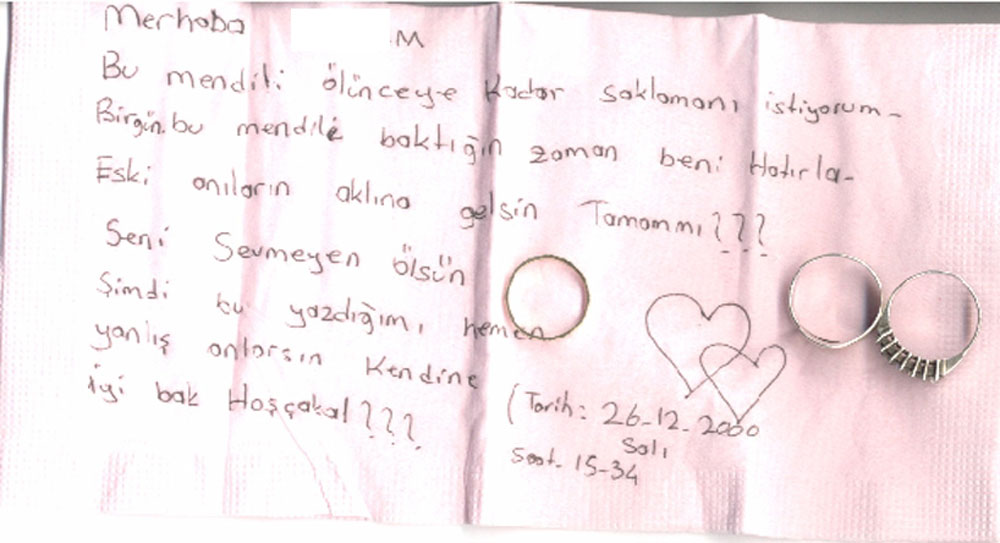 Merhaba M
Bu mendili ölünceye kadar saklamanı istiyorum-
Birgün.bu mendile baktığın zaman beni Hatırla-
Eski anıların aklına gelsin Tamammı???
Seni Sevmeyen ölsün
Şimdi bu yazdığımı hemen
yanlış anlarsın Kendine
iyi bak Hoşçakal???
(Tarih: 26-12-2000
Salı
Saat- 15-34